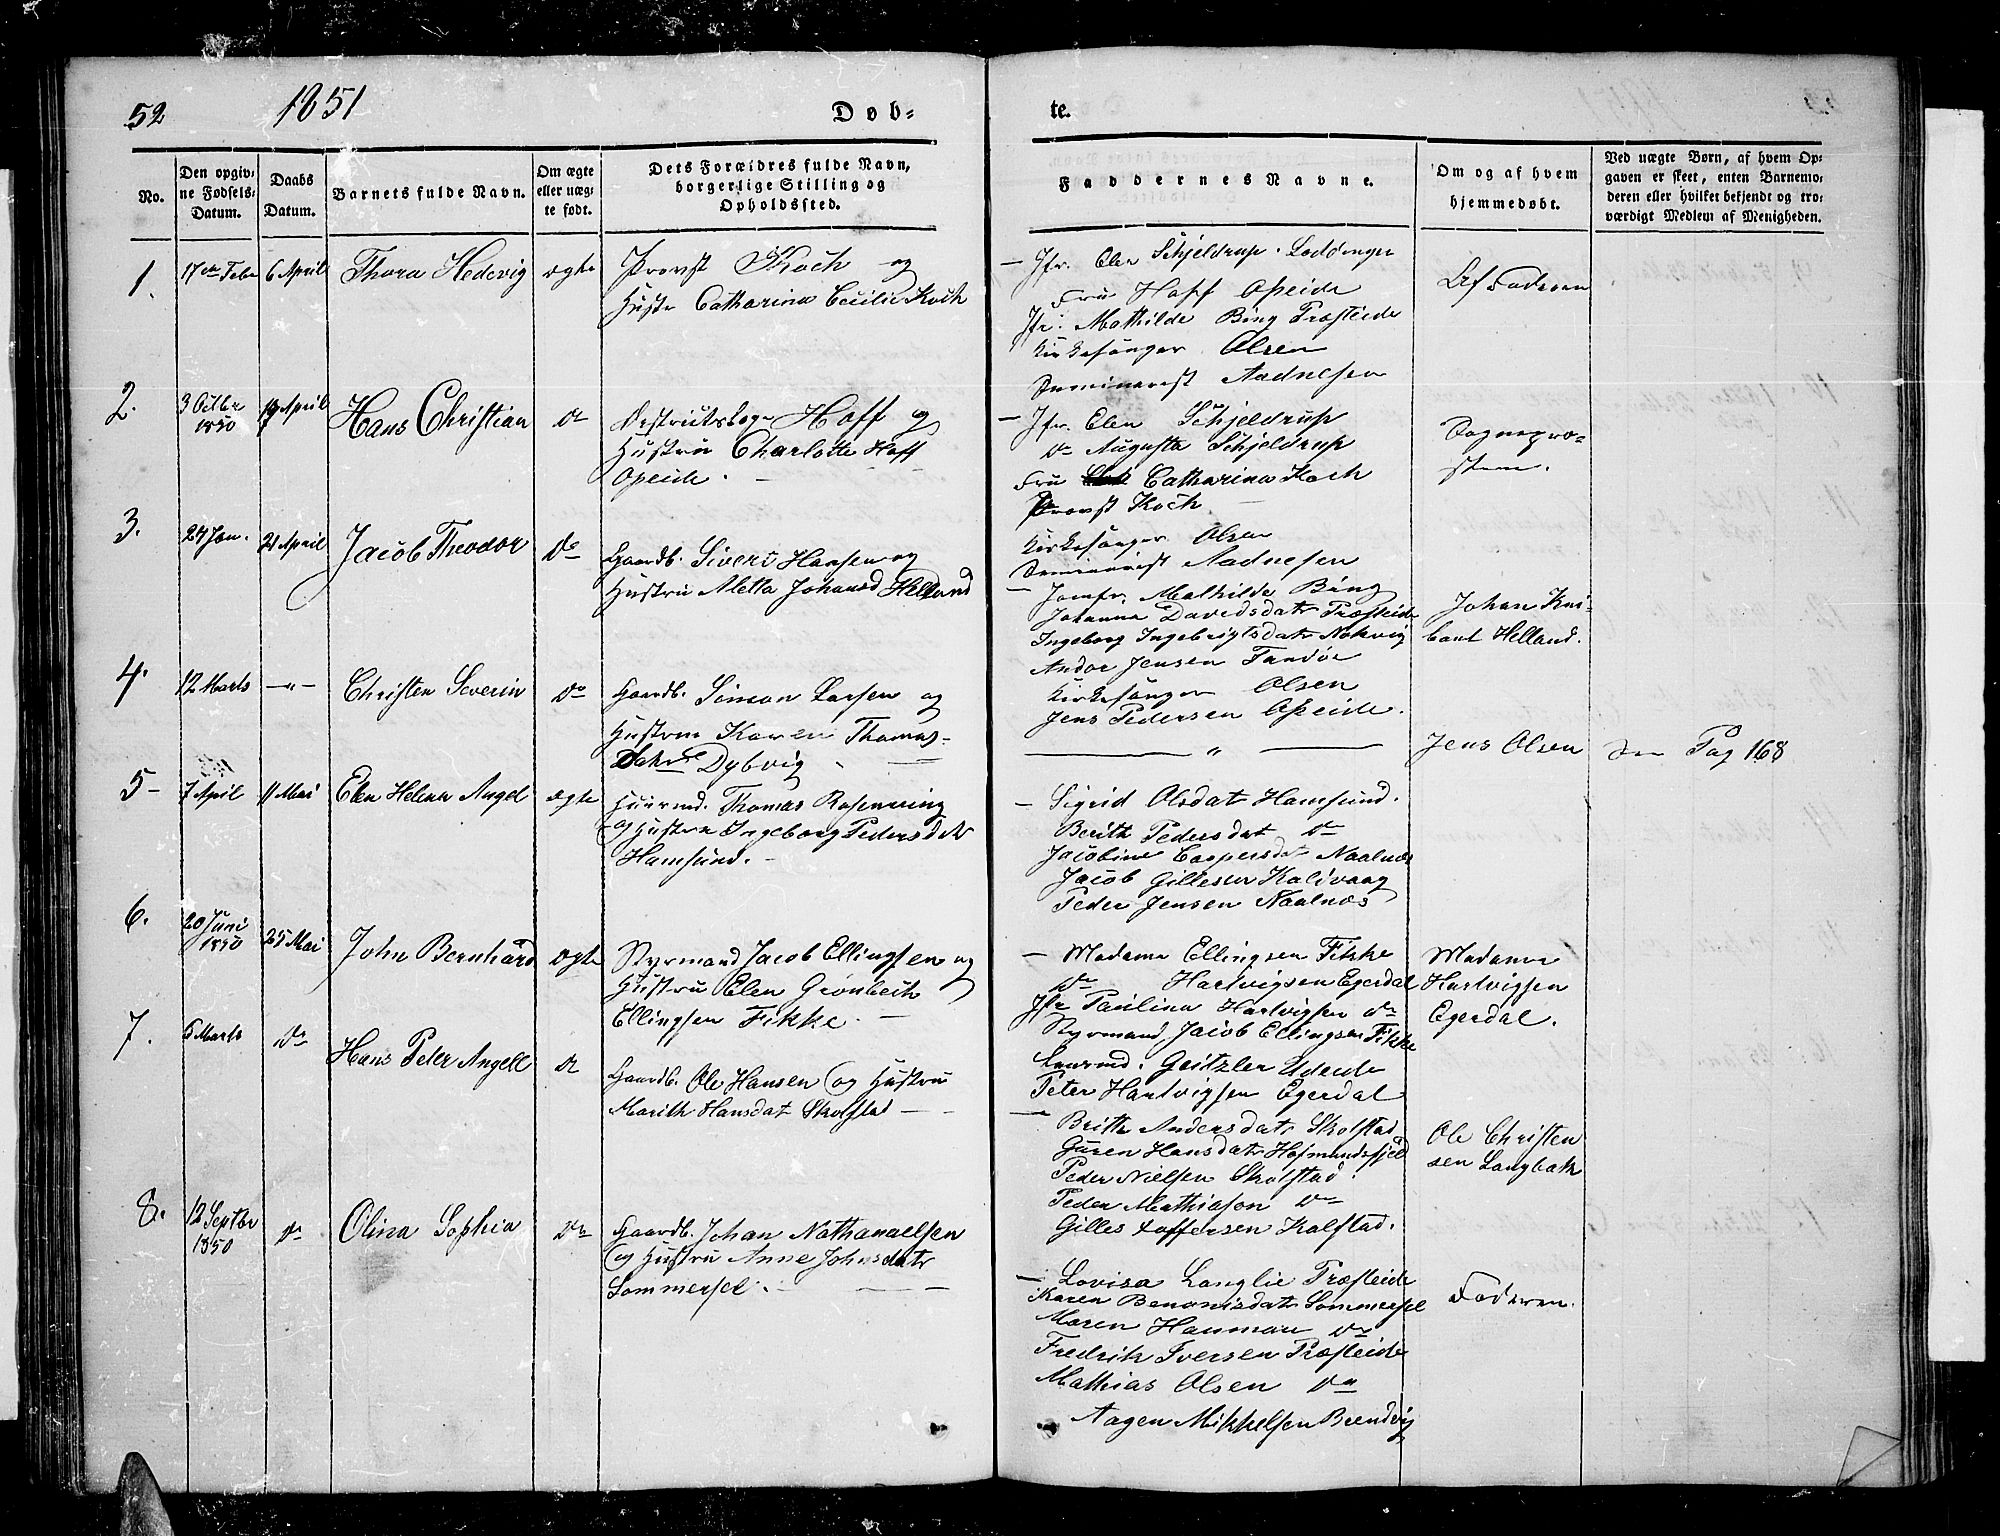 52
1851
Døb-
No.
Den opgiv-
ne Fødsels-
Datum.
Daabs
Datum.
Barnets fulde Navn.
Om ægte
eller uæg-
te født.
Dets Forældres fulde Navn,
borgerlige Stilling og
Opholdssted.
1.
17de Febr
6 April
Thora Hedevig
ægte
Provst Koch og
Hustr Catharina Cecilie Koch
2.
3 Octbr
1850
April
Hans Christian
do
Hoff og
Hustru Charlotte Hoff
Opeide.
3.
24 Jan.
21 April
Jacob Theodor
do
Gaardb. Sivert Hansen og
Hustru Aletta Johansd Helland
4.
12 Marts
—"—
Christen Severin
do
Gaardb. Simon Larsen og
Hustru Karen Thomas-
Dybvig
5-
7 April
11 Mai
Elen Helena Angel
ægte
Huusmd. Thomas Rosenving
og Hustru Ingeborg Pedersdatr
Hamsund.
6.
20 Juni
1850
25 Mai
John Bernhard
ægte
Styrmand Jacob Ellingsen og
Hustru Elen Grønbech
Ellingsen Fikke.
7.
6 Marts
do
Hans Peter Angell
do
Gaardb. Ole Hansen og Hustru
Marith Hansdat Skolstad
8.
12 Septbr
1850
do
Olina Sophia
do
Gaardb. Johan Nathanaelsen
og Hustru Anne Johnsdatr
Sommersel.
te.
Faddernes Navne.
Om og af hvem
hjemmedøbt.
Ved uægte Børn, af hvem Op-
gaven er skeet, enten Barnemo-
deren eller hvilket bekjendt og tro-
værdigt Medlem af Menigheden.
— Jfr. Elen Schjeldrup. Lødingen
Fru Hoff Opeide
Jfr. Mathilde Bing Præsteide
Kirkesanger Olsen
Seminarist Aadnesen
Af Faderen
— Jfr. Elen Schjeldrup
do Augusta Schjeldrup
Fru Catharina Koch
Provst Koch
Kirkesanger Olsen
Seminarist Aadnesen
Sognepre-
sten.
— Jomfr. Mathilde Bing
Johanna Davidsdatr Præsteide
Ingeborg Ingebrigtsdatr Nokvig
Andor Jensen Tandøe
Kirkesanger Olsen
Jens Pedersen Opeide.
Johan Kni-
Helland.
— " —
Jens Olsen
Pag 168
— Sigrid Olsdatr Hamsund.
Berith Pedersdat do
Jacobine Caspersdat Naalnæs
Jacob Gillesen Kaldvaag
Peder Jensen Naalnæs
— Madame Ellingsen Fikke
do Hartvigsen Egerdal
Jfr Paulina Hartvigsen do
Styrmand, Jacob Ellingsen Fikke
Geitzler
Peter Hartvigsen Egerdal
Madame
Hartvigsen
Egerdal.
— Britte Andersdatr Skolstad
Guren Hansdatr
Peder Nielsen Skolstad
Peder Mathiason do
Gilles Toffersen Kalstad.
Ole Christen
sen Langbak
— Lovisa Langlie Præsteide
Karen Benonisdatr Sommersel
Maren Hanman do
Fredrik Iversen Præsteide
Mathias Olsen do
Aagen Mikkelsen
Faderen.